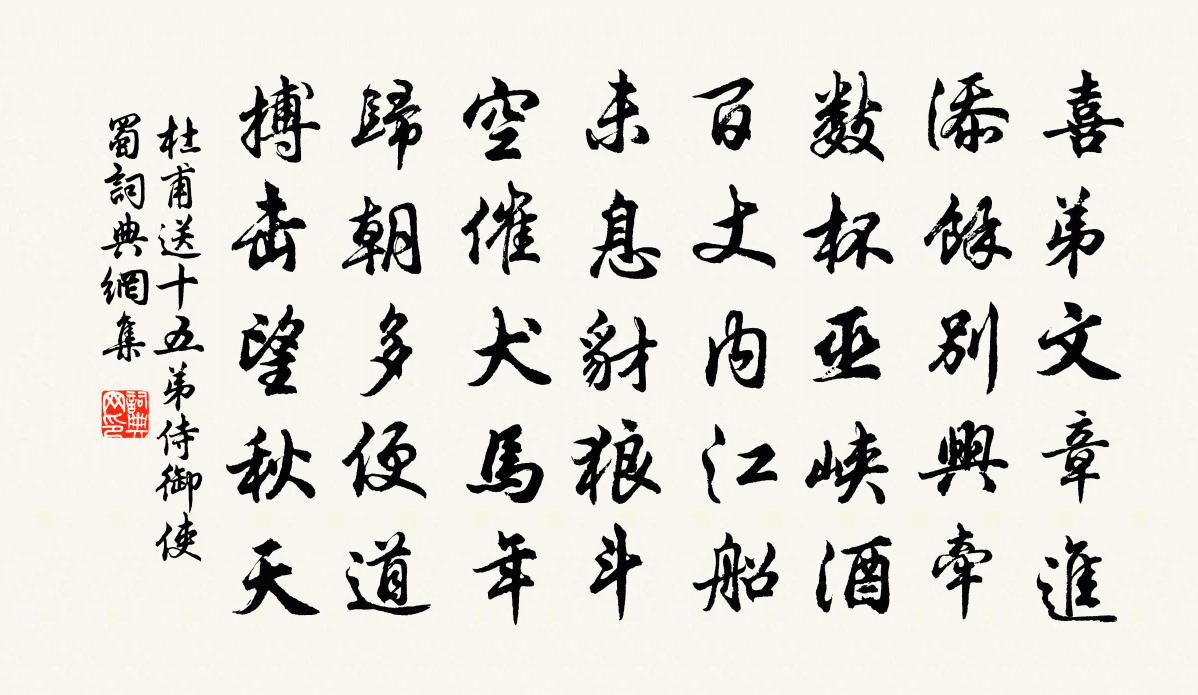 喜弟文章進
添餘別興牽
數杯巫峽酒
百丈內江船
未息豺狼斗
空催犬馬年
歸朝多便道
搏击望秋天
杜甫送十五弟侍御使
蜀詞典網集
詞典网印